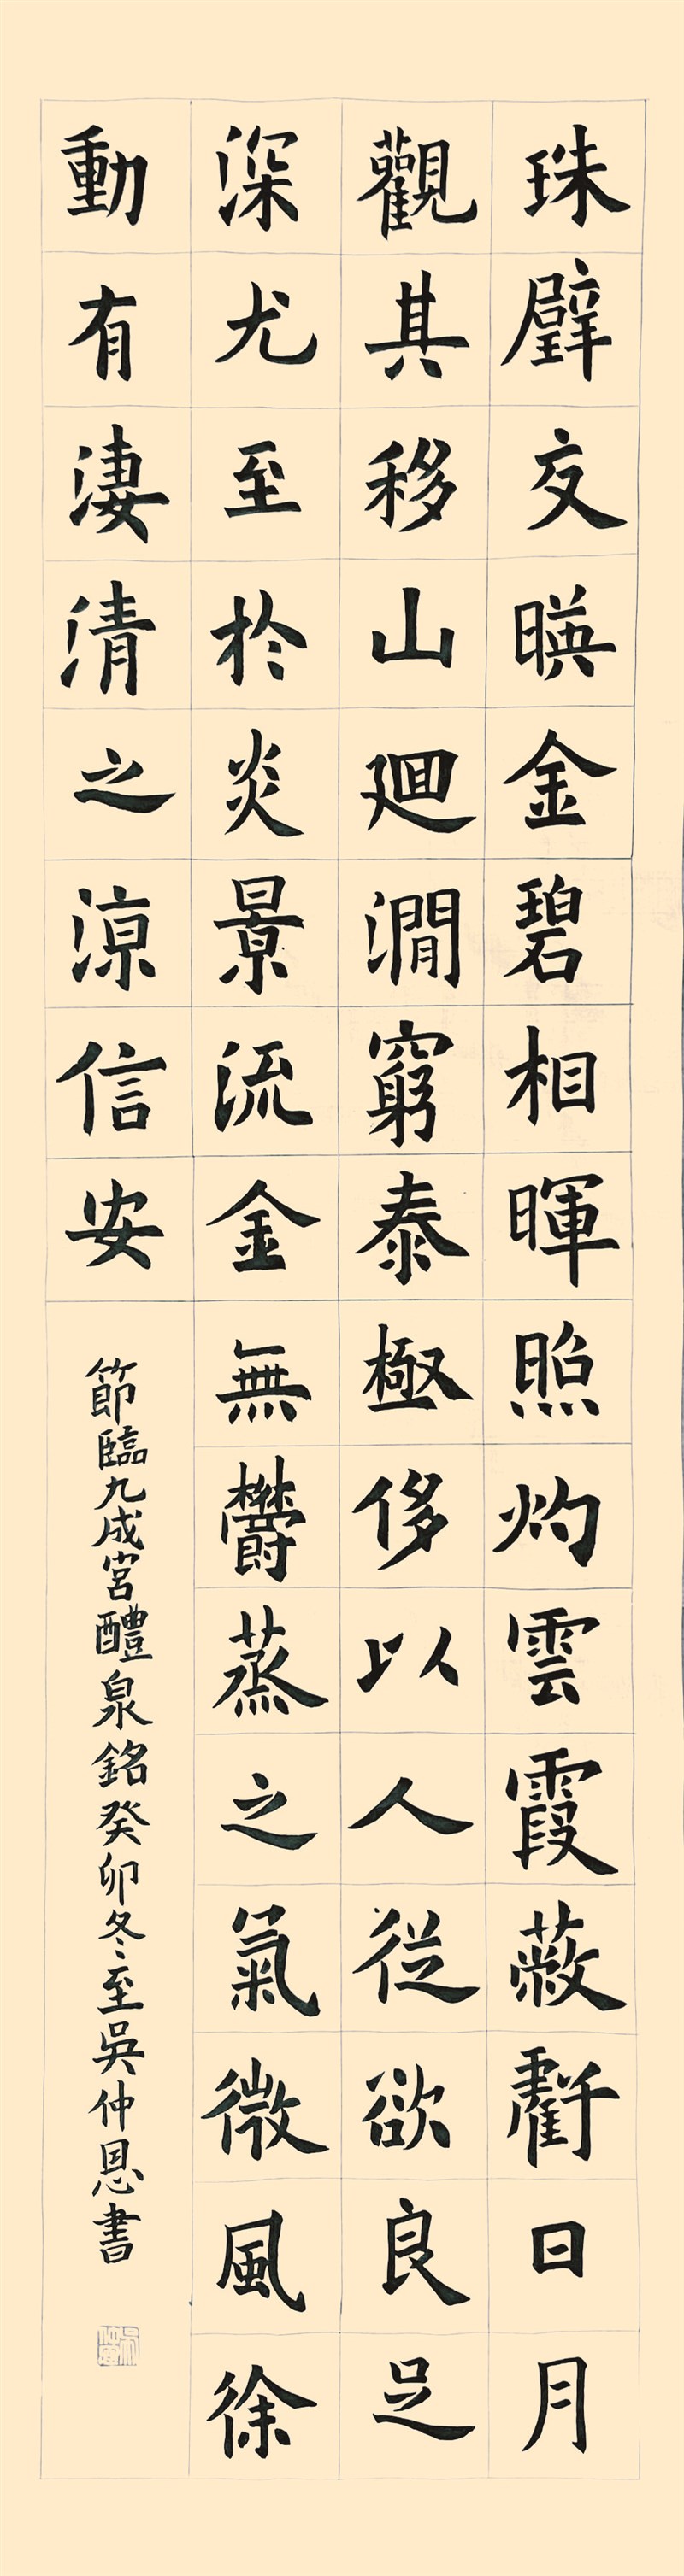 珠璧交暎金碧相暉照灼雲霞蔽虧日月
觀其移山廻澗窮泰極侈以人從欲良足
深尤至於炎景流金無鬱蒸之氣微風徐
動有淒清之涼信安
節臨九成宮醴泉銘癸卯冬至吳仲恩書